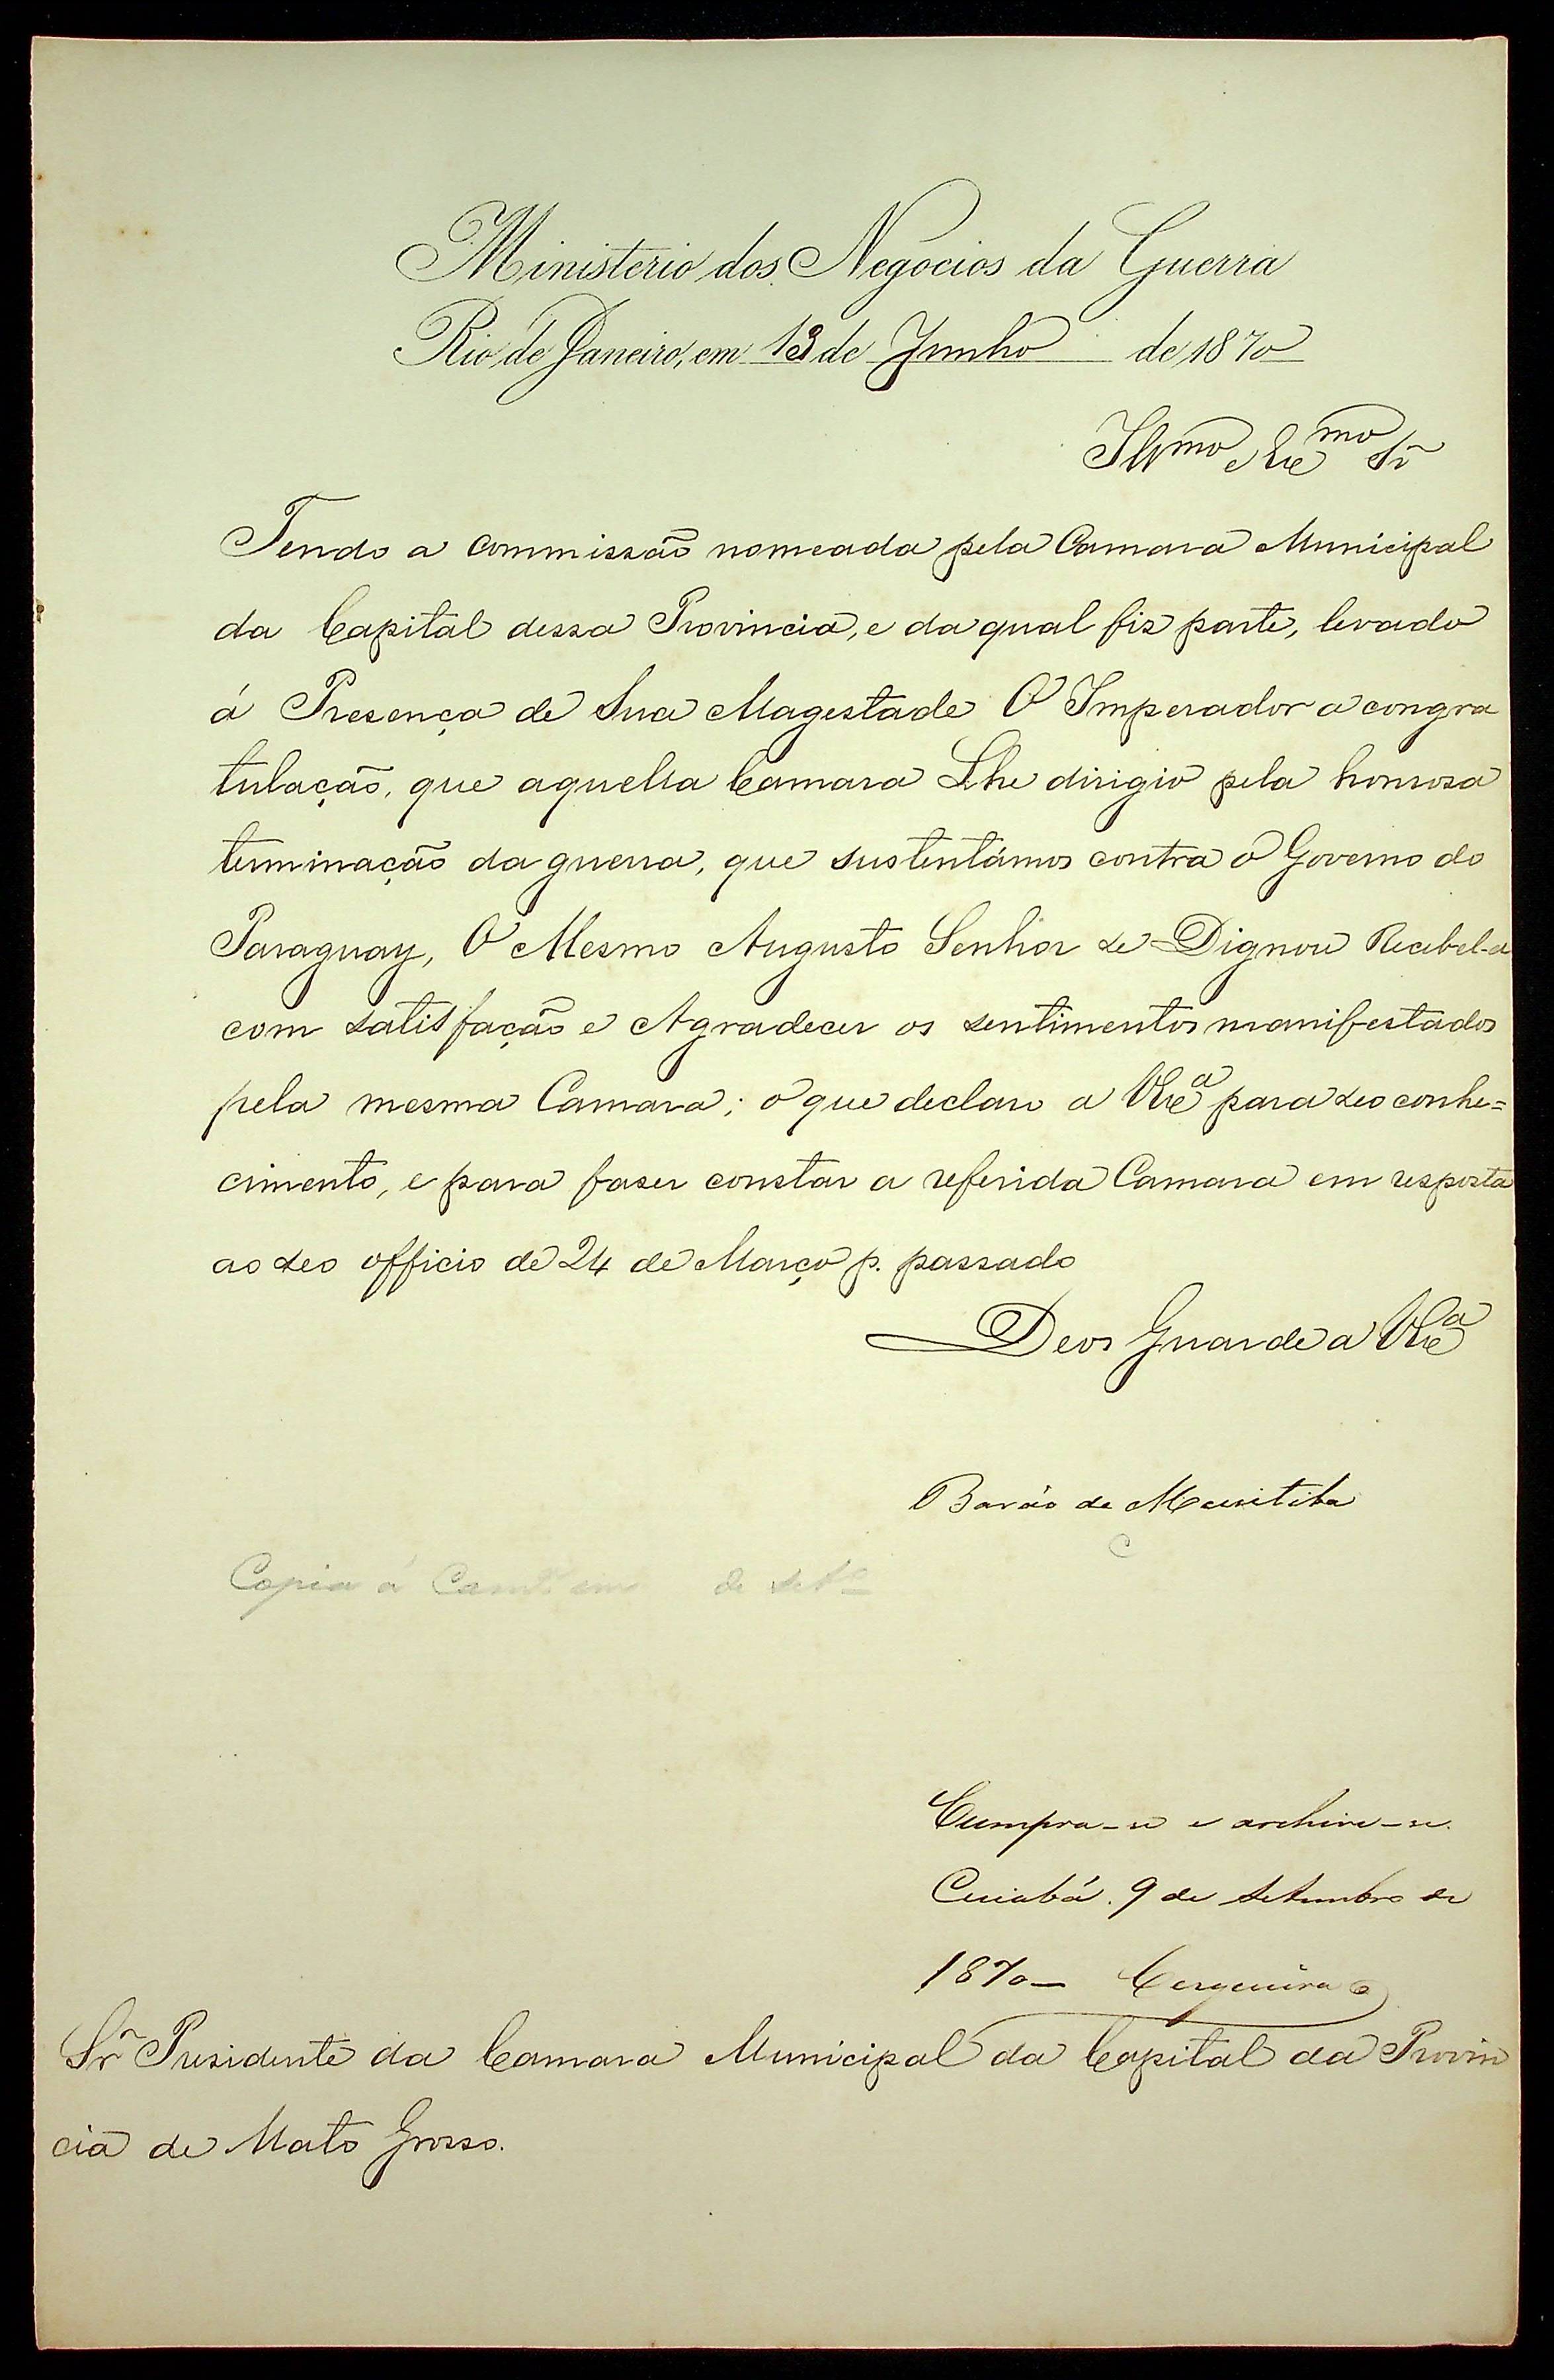 Ministerio dos Negocios da Guerra
Rio de Janeiro, em 13 de Junho de 1870
Illmo e Exmo Sr
Tendo a commissão nomeada pela Camara Municipal
da Capital dessa Provincia, e da qual fiz parte, levado
á Presença de Sua Magestade O Imperador a congra
tulação, que aquella Camara Lhe dirigio pela honrosa
terminação da guerra, que sustentámos contra o Governo do
Paraguay, O Mesmo Augusto Senhor se Dignou Recebel-a
com satisfação e Agradecer os sentimentos manifestados
pela mesma Camara; o que declaro a VExa para seo conhe=
cimento, e para faser constar a referida Camara em resposta
ao seo officio de 24 de Março p. passado
Deos Guarde a VExa
Barão de Muritiba
Copia á em de
Cumpra-se e archive-se.
Cuiabá. 9 de Setembro de
1870 — Cerqueira
Sr Presidente da Camara Municipal da Capital da Provin
cia de Mato Grosso.